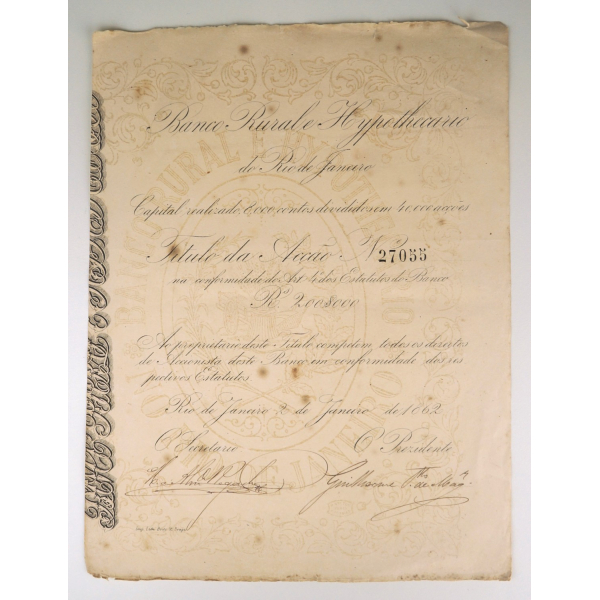 Banco Rural e Hypothecario
do Rio de Janeiro
Capital realizado 8,000 contos divididos em 40,000 acções
Titulo da Acção Nº 27055
na conformidade do Art. 4º dos Estatutos do Banco
Rs 200$000
Ao proprietario deste Titulo competem todos os direitos
de Accionista deste Banco em conformidade dos res
pectivos Estatutos
Rio de Janeiro 2 de Janeiro de 1862
O Secretario O Prezidente
Guilherme